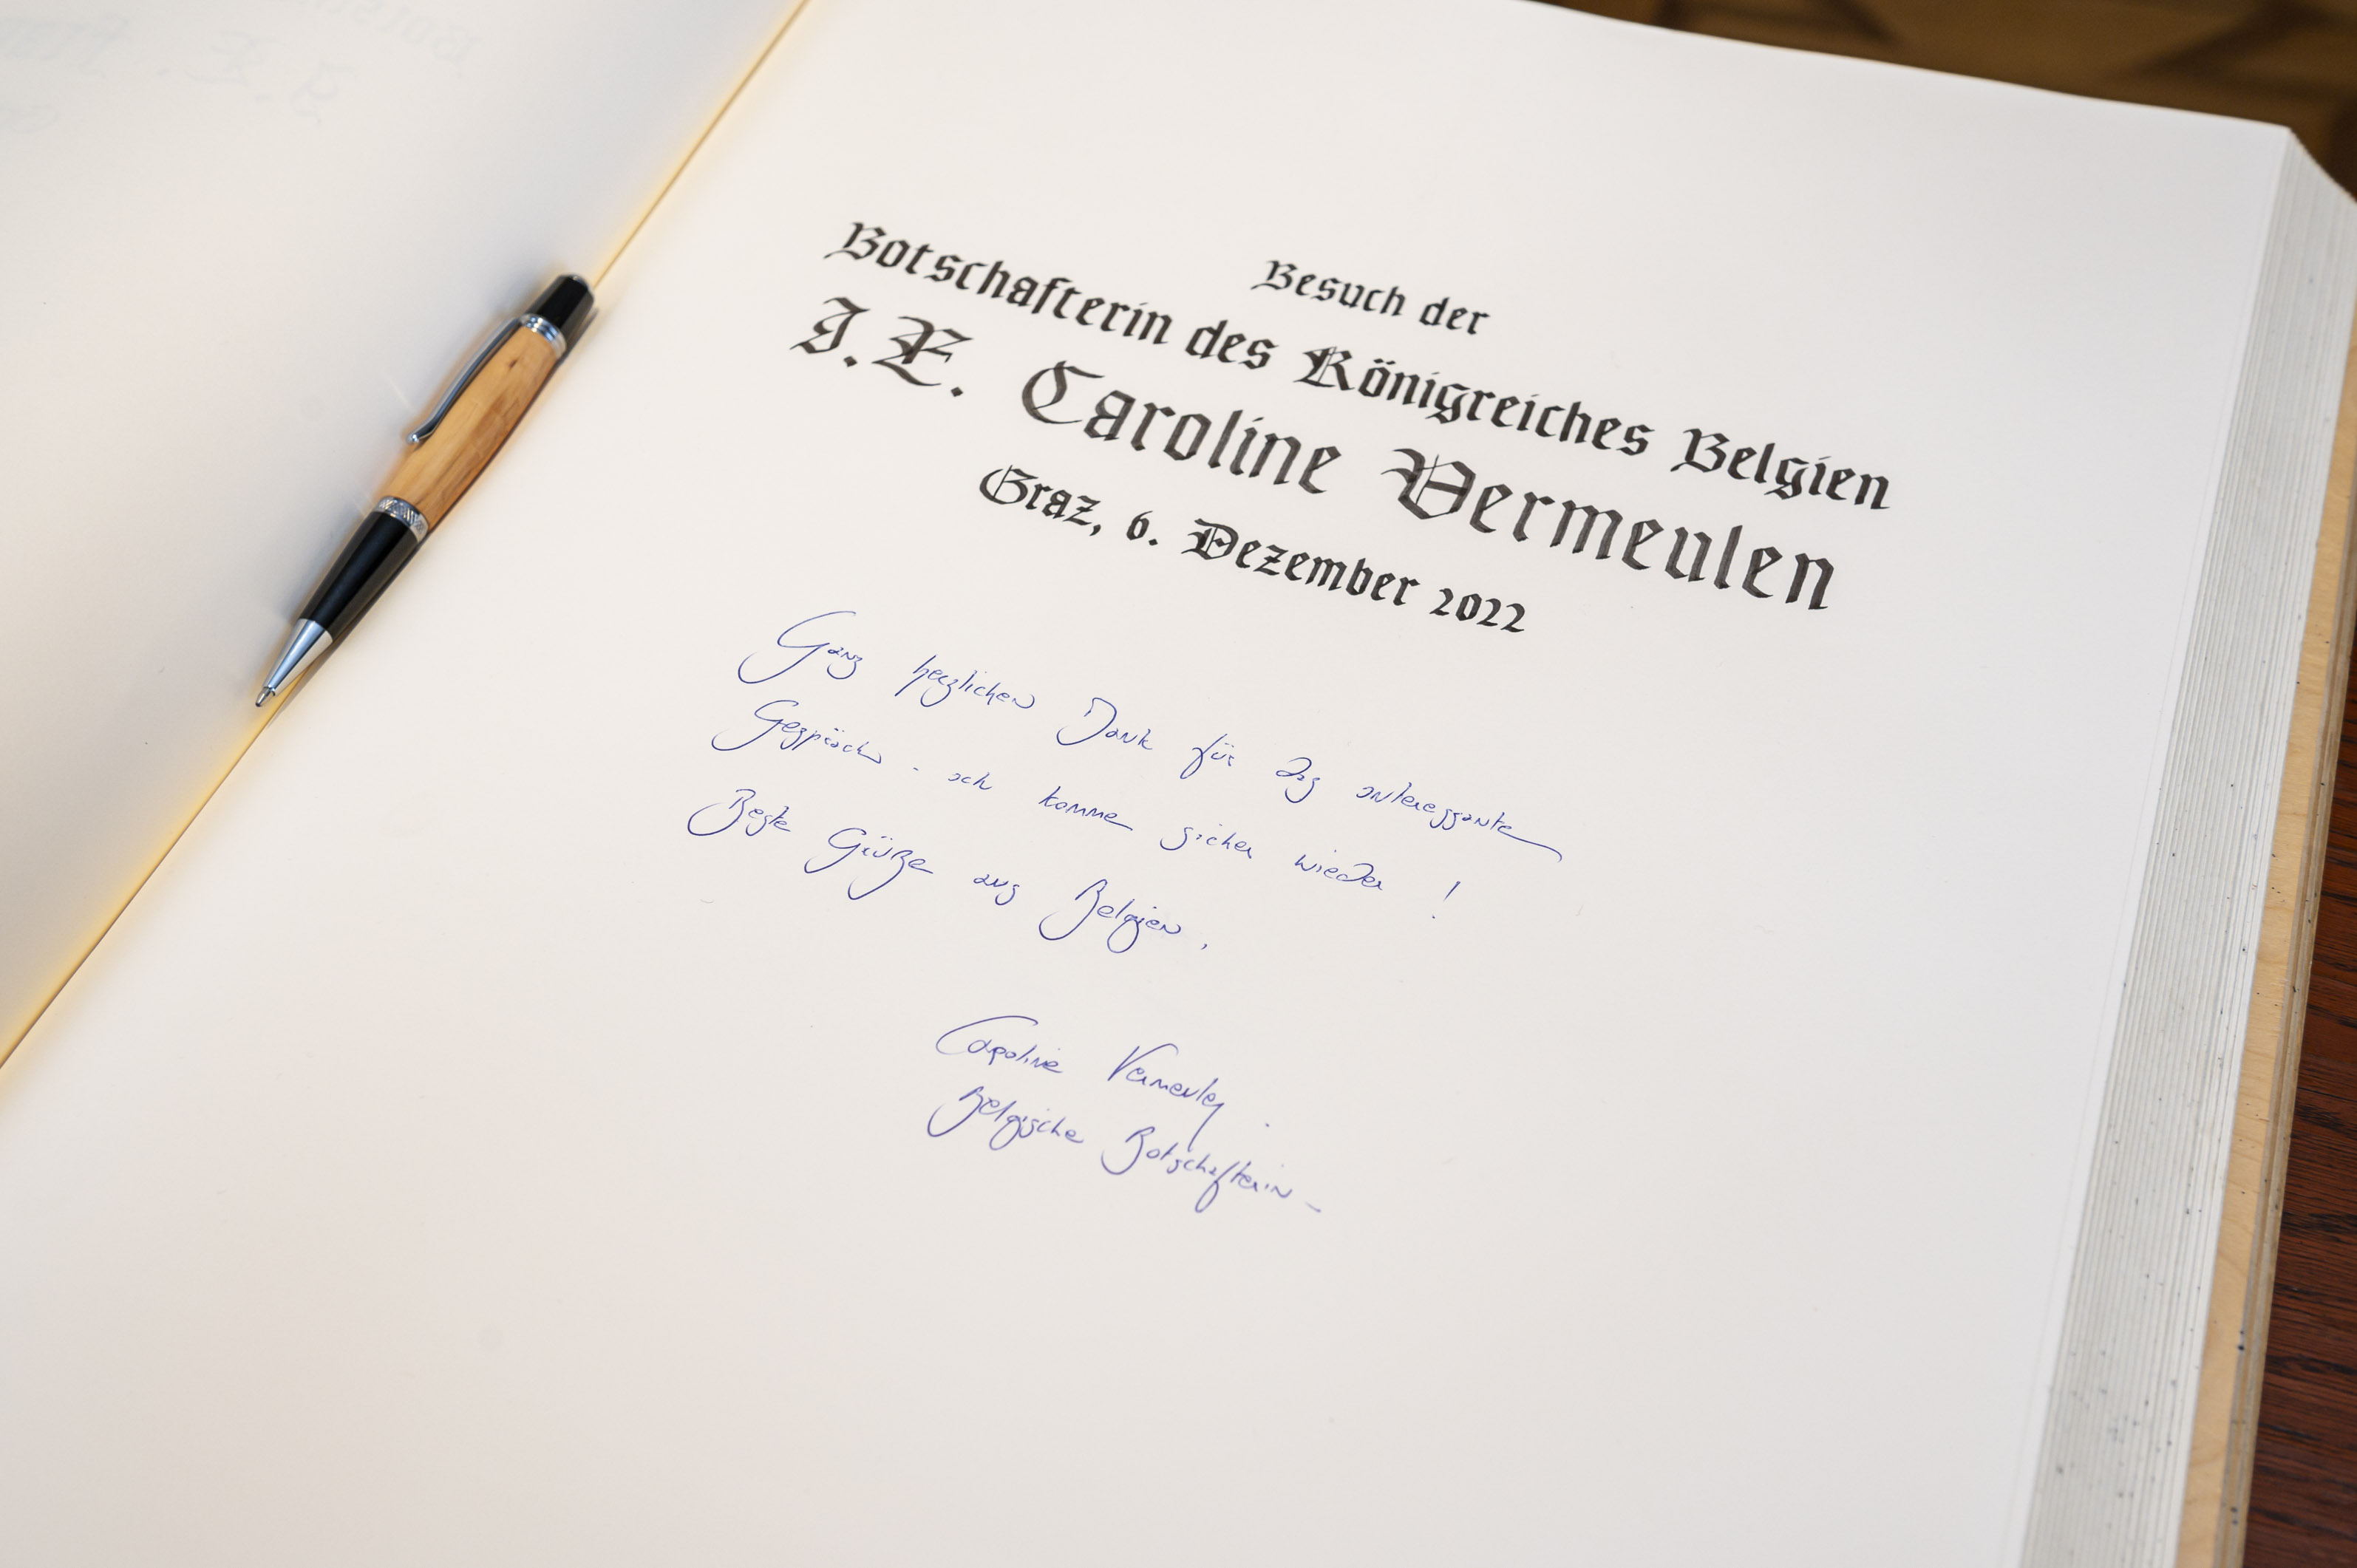 Besuch der
Botschafterin des Königreiches Belgien
I.E. Caroline Vermeulen
Graz, 6. Dezember 2022
Ganz herzlichen Dank für das interessante
Gespräch - ich komme sicher wieder !
Beste Grüße aus Belgien,
Caroline Vermeulen.
Belgische Botschafterin-